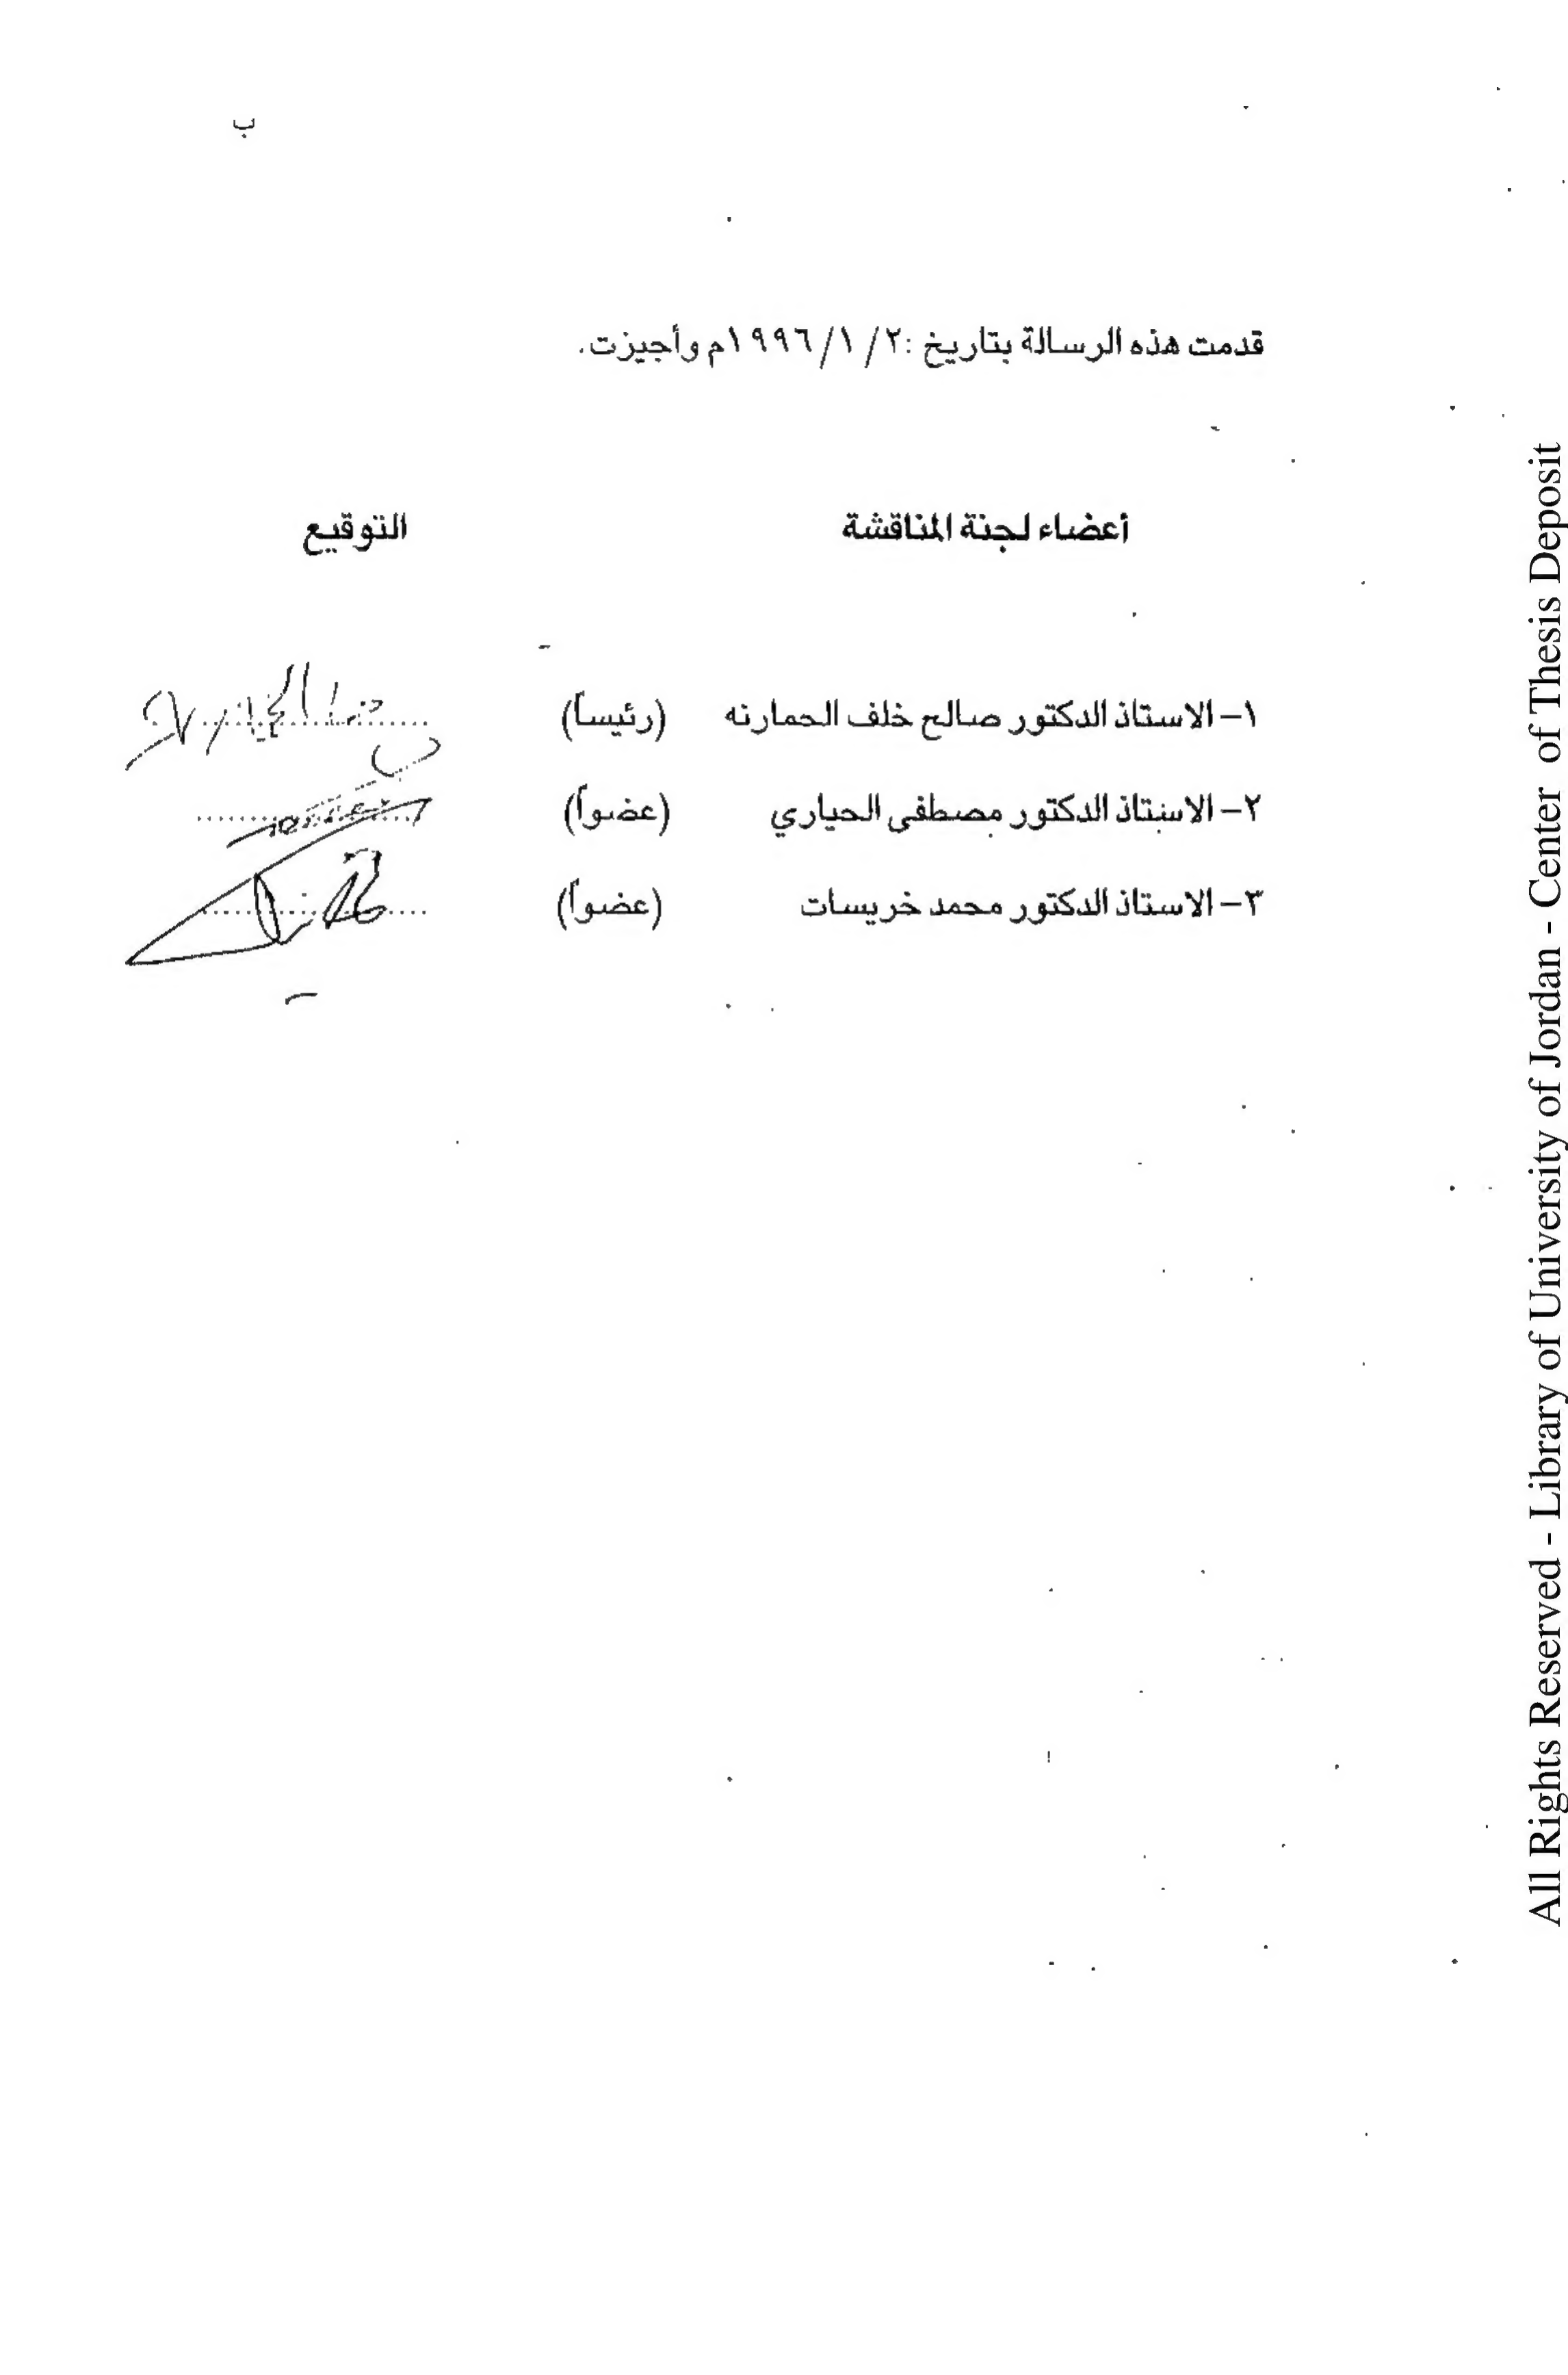 ب
قدمت هذه الرسالة بتاريخ :٢/ ١/ ١٩٩٦م وأجيزت.
أعضاء لجنة المناقشة التوقيع
١- الاستاذ الدكتور صالح خلف الحمارنه (رئيساً)
٢- الاستاذ الدكتور مصطفى الحياري (عضواً)
٣- الاستاذ الدكتور محمد خريسات (عضواً)
All Rights Reserved - Library of University of Jordan - Center of Thesis Deposit